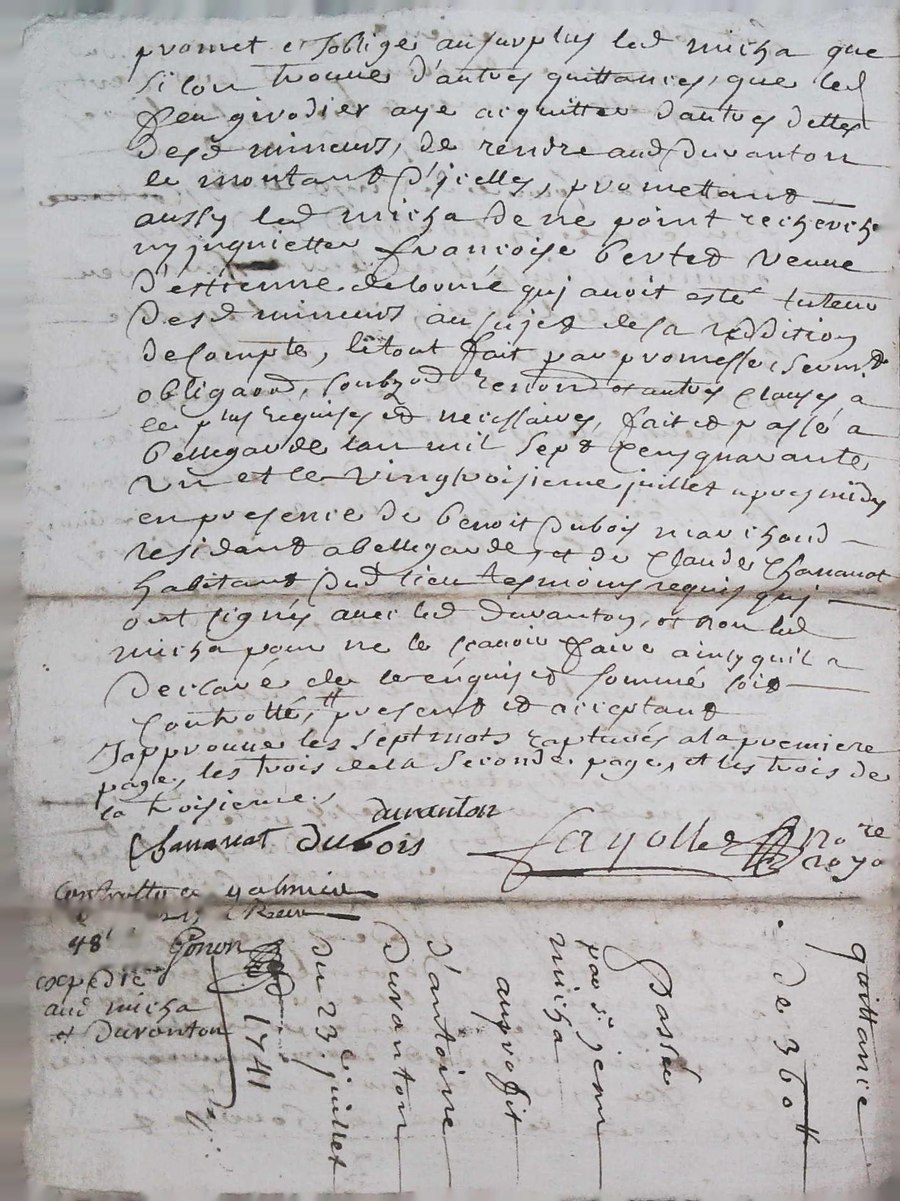 promet et s'oblige au surplus led micha que
si l'on trouve d'autres quittances, que led
feu girodier aye acquitter d'autres dettes
desd mineurs, de rendre aud duranton
le montant d'jcelles, promettant
aussy led micha de ne point recherche
ny jnquietter francoise bertet veuve
d'estienne delorme quj avoit esté tuteur
desd mineurs au sujet de sa reddition
de compte, le tout fait par promesse, serm.t
obliga.ond, soubz.ond renon.ond et autres clauses a
ce plus requises et necessaires, fait et passé a
bellegarde l'an mil sept cens quarante
un et le vingtroisieme juillet apres midy
en presence de benoit dubois marchand
residant a bellegarde, et de Claude Chananat
habitant dud lieu tesmoins requis quj
ont signés avec led duranton, et non led
micha pour ne le scavoir faire ainsy quil a
declaré de ce enquis et sommé soit
controllé, # present et acceptant
J'approuve les sept mots rapturés a la premiere
page, les trois de la seconde page, et les trois de
la troisieme.
duranton
Chananat dubois fayolle no.re royo
Controllé a galmier
48 Gonon
expedié
aud micha
et duranton
quittance
de 360 ₶
Passée
par s.r jean
micha
au profit
d'antoine
duranton
du 23.e juillet
1741